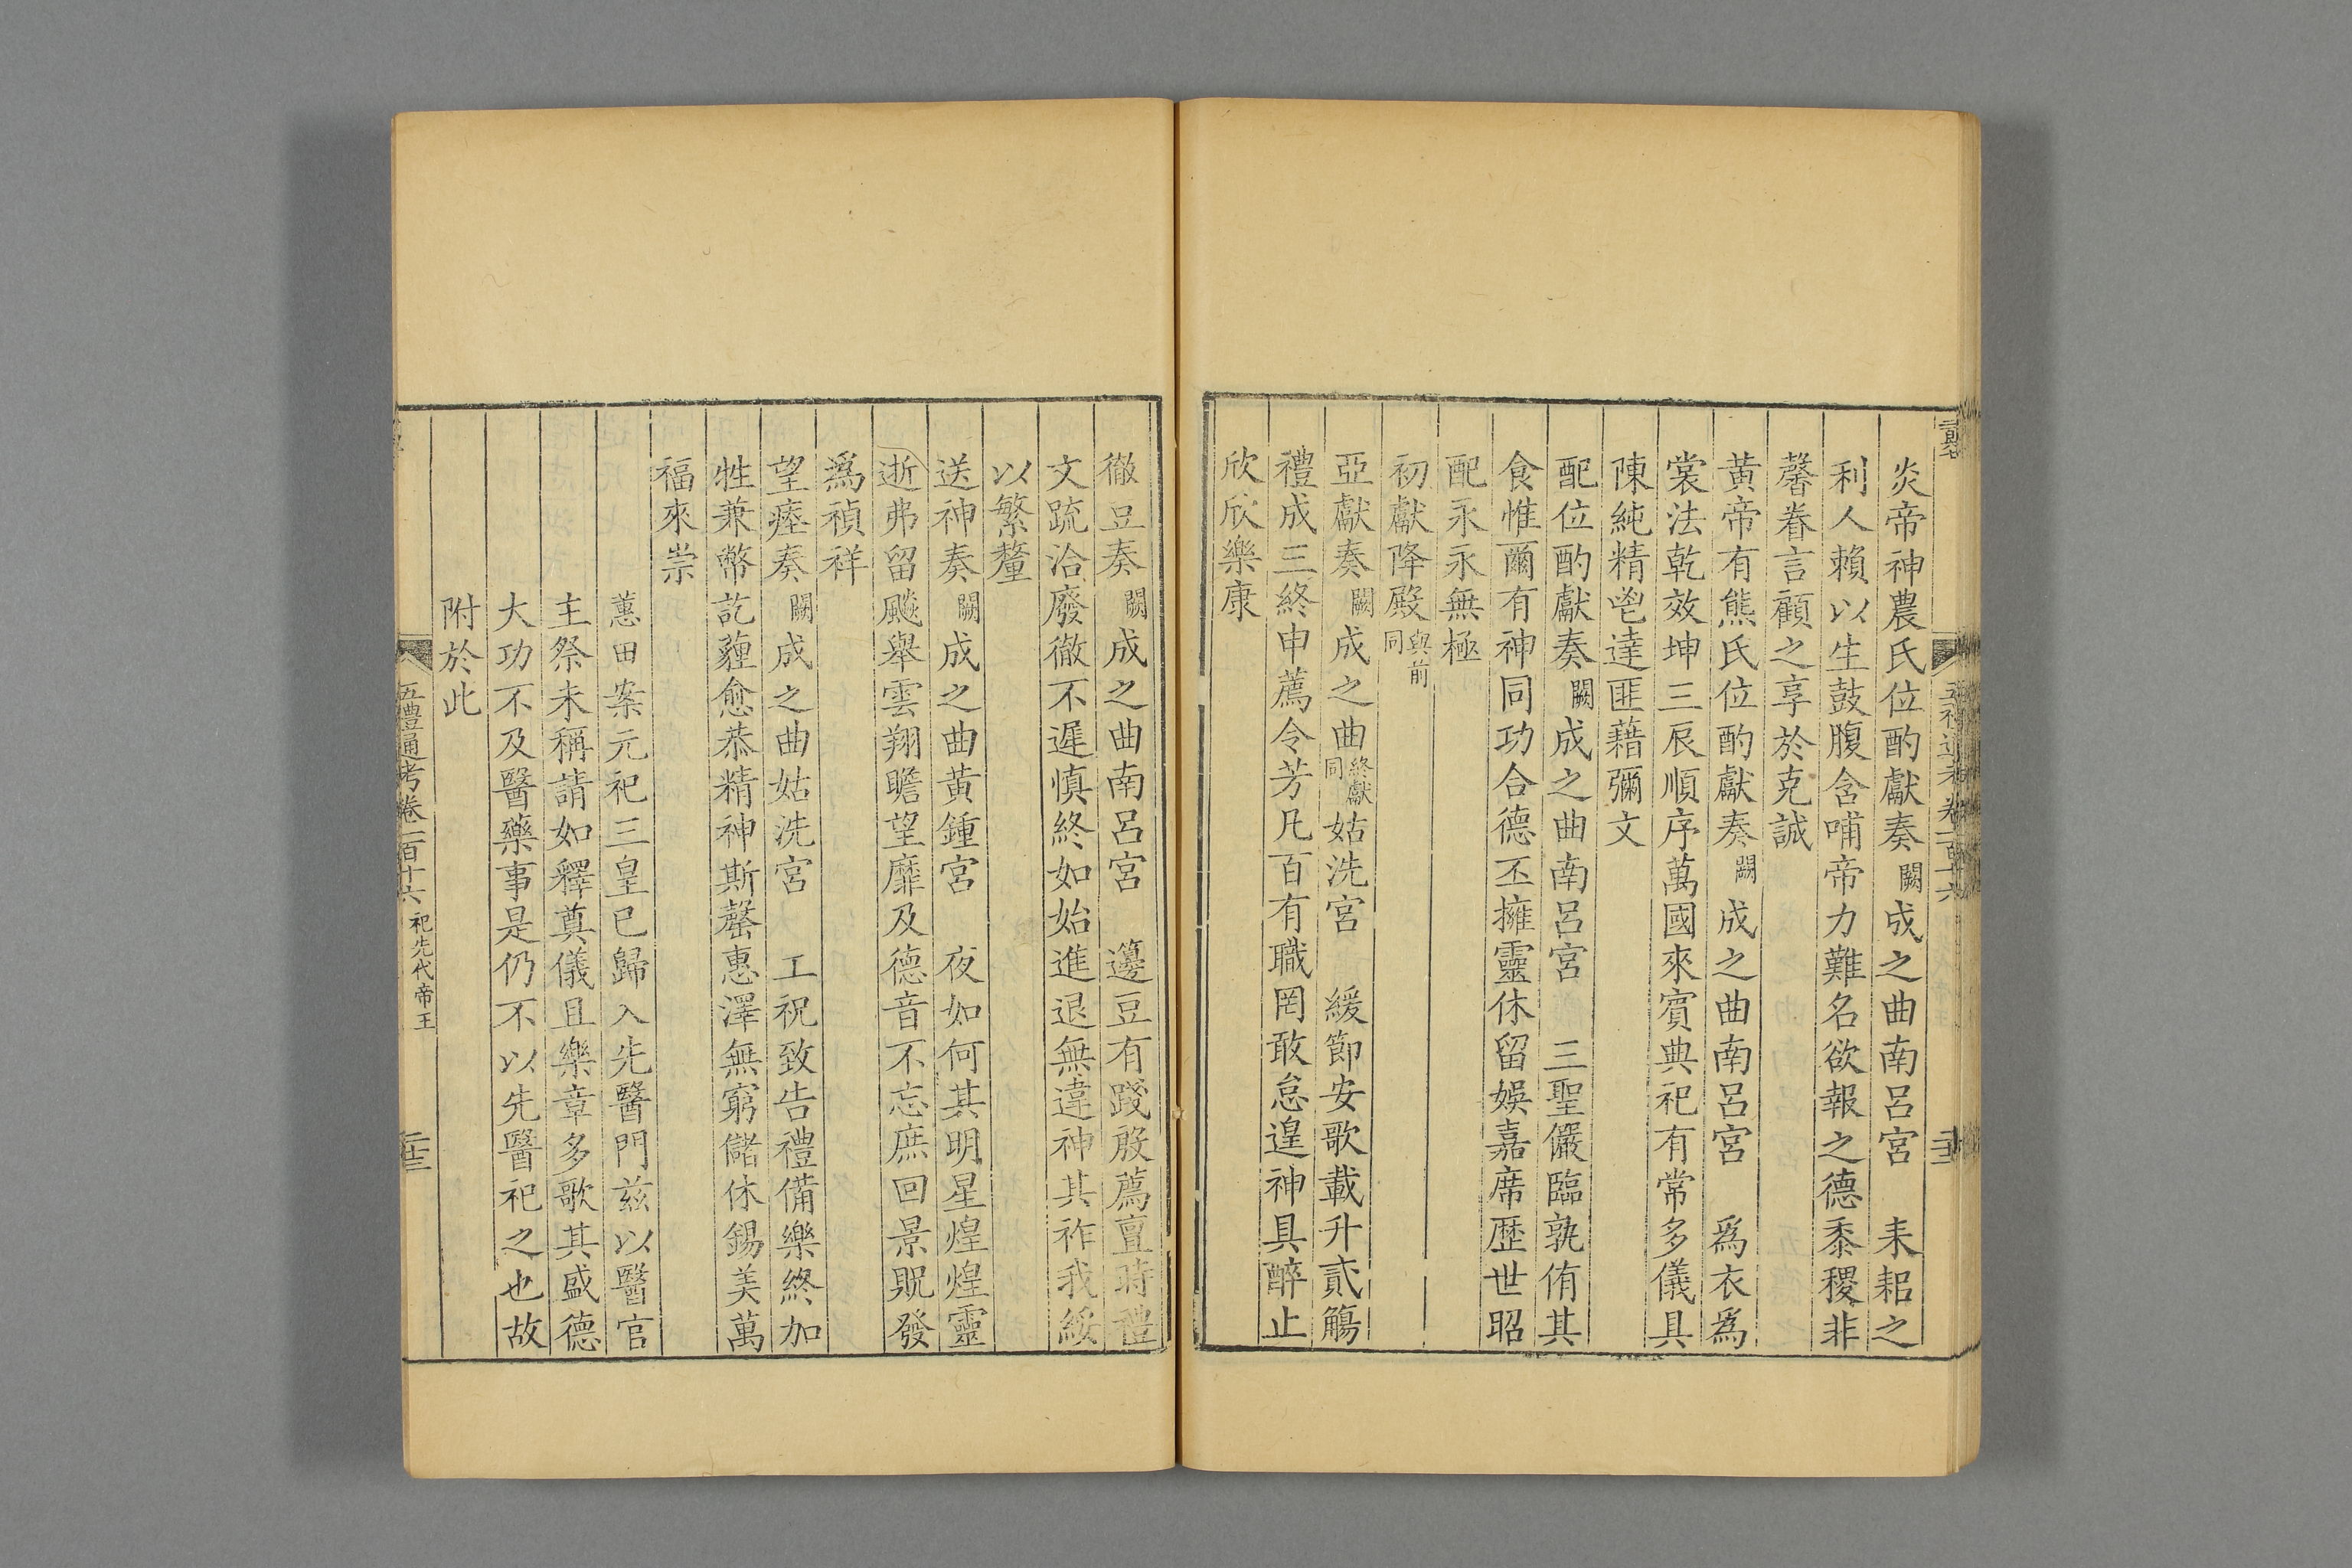 炎帝神農氏位酌獻奏闕成之曲南呂宮　耒耜之
利人賴以生鼓腹含哺帝力難名欲報之德黍稷非
馨眷言顧之享於克誠
黃帝有熊氏位酌獻奏闕成之曲南呂宮　爲衣爲
裳法乾效坤三辰順序萬國來賓典祀有常多儀具
陳純精鬯達匪藉彌文
配位酌獻奏闕成之曲南呂宮　三聖儼臨孰侑其
食惟爾有神同功合德丕擁靈休留娛嘉席歷世昭
配永永無極
初獻降殿與前同
亞獻奏闕成之曲終獻同姑洗宮　緩節安歌載升貳觴
禮成三終申薦令芳凡百有職罔敢怠遑神具醉止
欣欣樂康
徹豆奏闕成之曲南呂宮　籩豆有踐殷薦亶時禮
文疏洽廢徹不遲慎終如始進退無違神其祚我綏
以繁釐
送神奏闕成之曲黃鍾宮　夜如何其明星煌煌靈
逝弗留飈舉雲翔瞻望靡及德音不忘庶回景貺發
爲禎祥
望瘞奏闕成之曲姑洗宮　工祝致告禮備樂終加
牲兼幣訖薶愈恭精神斯罄惠澤無窮儲休錫美萬
福來崇
蕙田案元祀三皇已歸入先醫門兹以醫官
主祭未稱請如釋奠儀且樂章多歌其盛德
大功不及醫藥事是仍不以先醫祀之也故
附於此
五禮通考卷一百十六　祀先代帝王